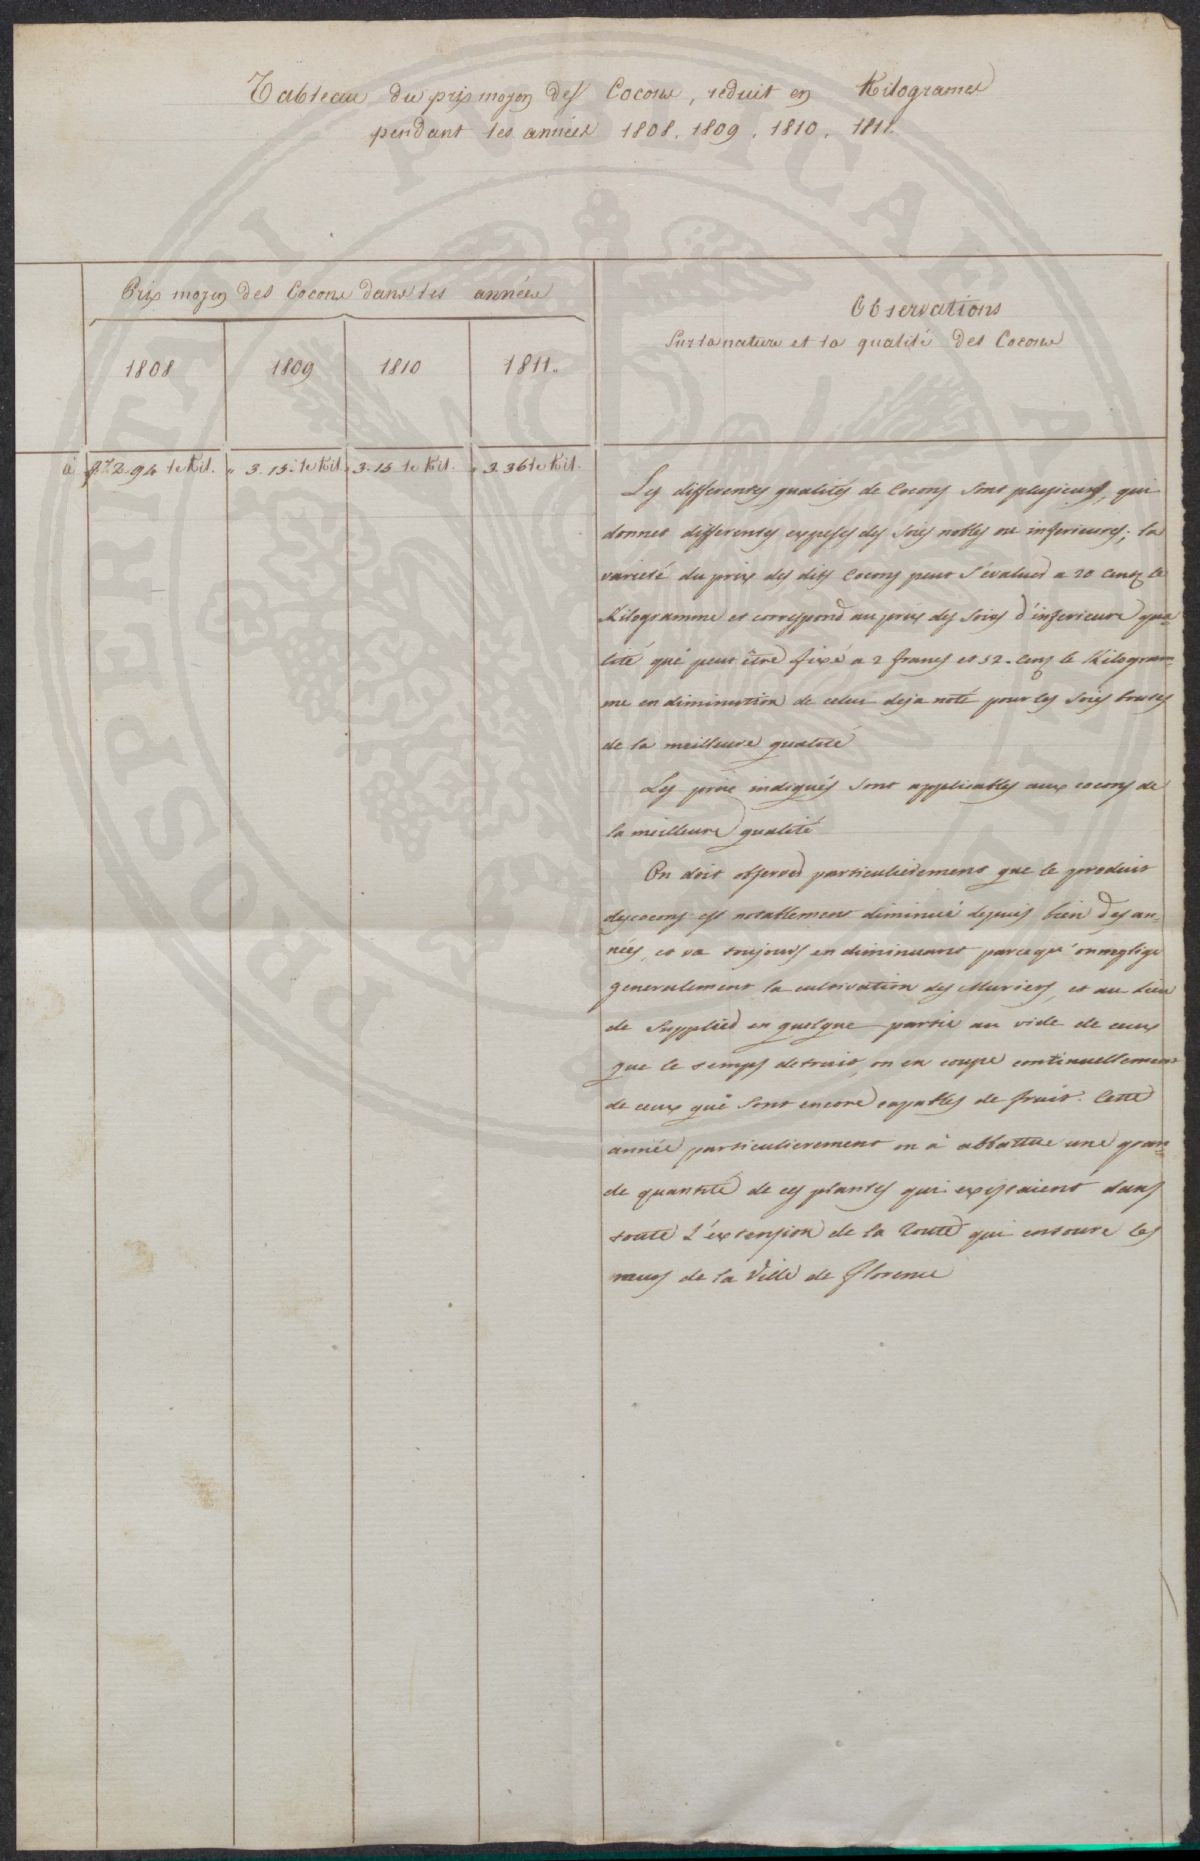 Tableau du prix moyen des Cocons, reduit en Kilogrames
pendant les années 1808. 1809. 1810. 1811.
Prix moyen des Cocons dans les années
Observations
Sur la nature et la qualité des Cocons
1808 1809 1810 1811.
à fr. 2. 94 le Kil. " 3. 15. le Kil. " 3. 15 le Kil. " 3. 36 le Kil.
Les differentes qualités de Cocons sont plusieurs, qui
donnet differentes especes des soies nobles ou inferieures; la
varieté du prix des dits Cocons peut s'évaluer a 20 Cent. le
Kilogramme et correspond au prix des soies d'inferieure qua=
lité qui peut être fixé a 2 francs et 52. Cent. le Kilogram=
me en diminution de celui deja noté pour les soies brutes
de la meilleure qualité
Les prix indiqués sont applicables aux cocons de
la meilleure qualité
On doit observer particulierement que le produit
des cocons est notablement diminué depuis bien des an=
nées, et va toujours en diminuant parceque on neglige
generalement la cultivation des Muriers, et au lieu
de supplier en quelque partie au vide de ceux
que le temps detruit, on en coupe continuellement
de ceux qui sont encore capables de fruit. Cette
année particulierement on à abbattue une gran=
de quantité de ces plantes qui existaient dans
toute l'extension de la Route qui entoure les
murs de la Ville de Florence
PROSPERITATI PUBLICAE AUGENDAE